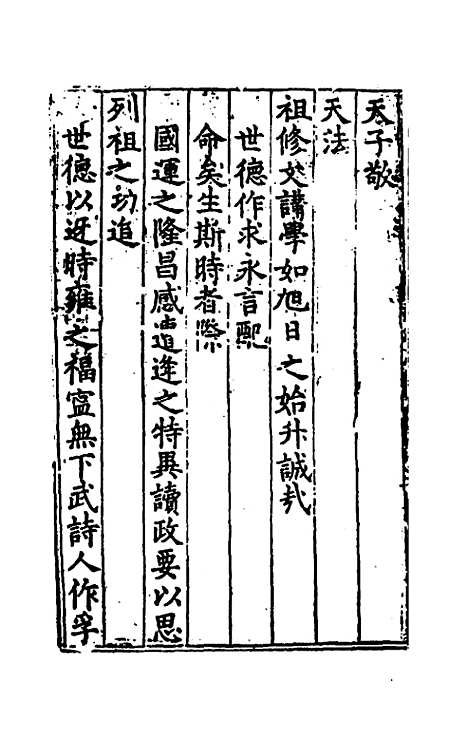 天子敬
天法
祖修文講學如旭日之始升誠哉
世德作求永言配
命矣生斯時者際
國運之隆昌感遭逢之特異讀政要以思
列祖之功追
世德以迓時雍之福寔無下武詩人作孚